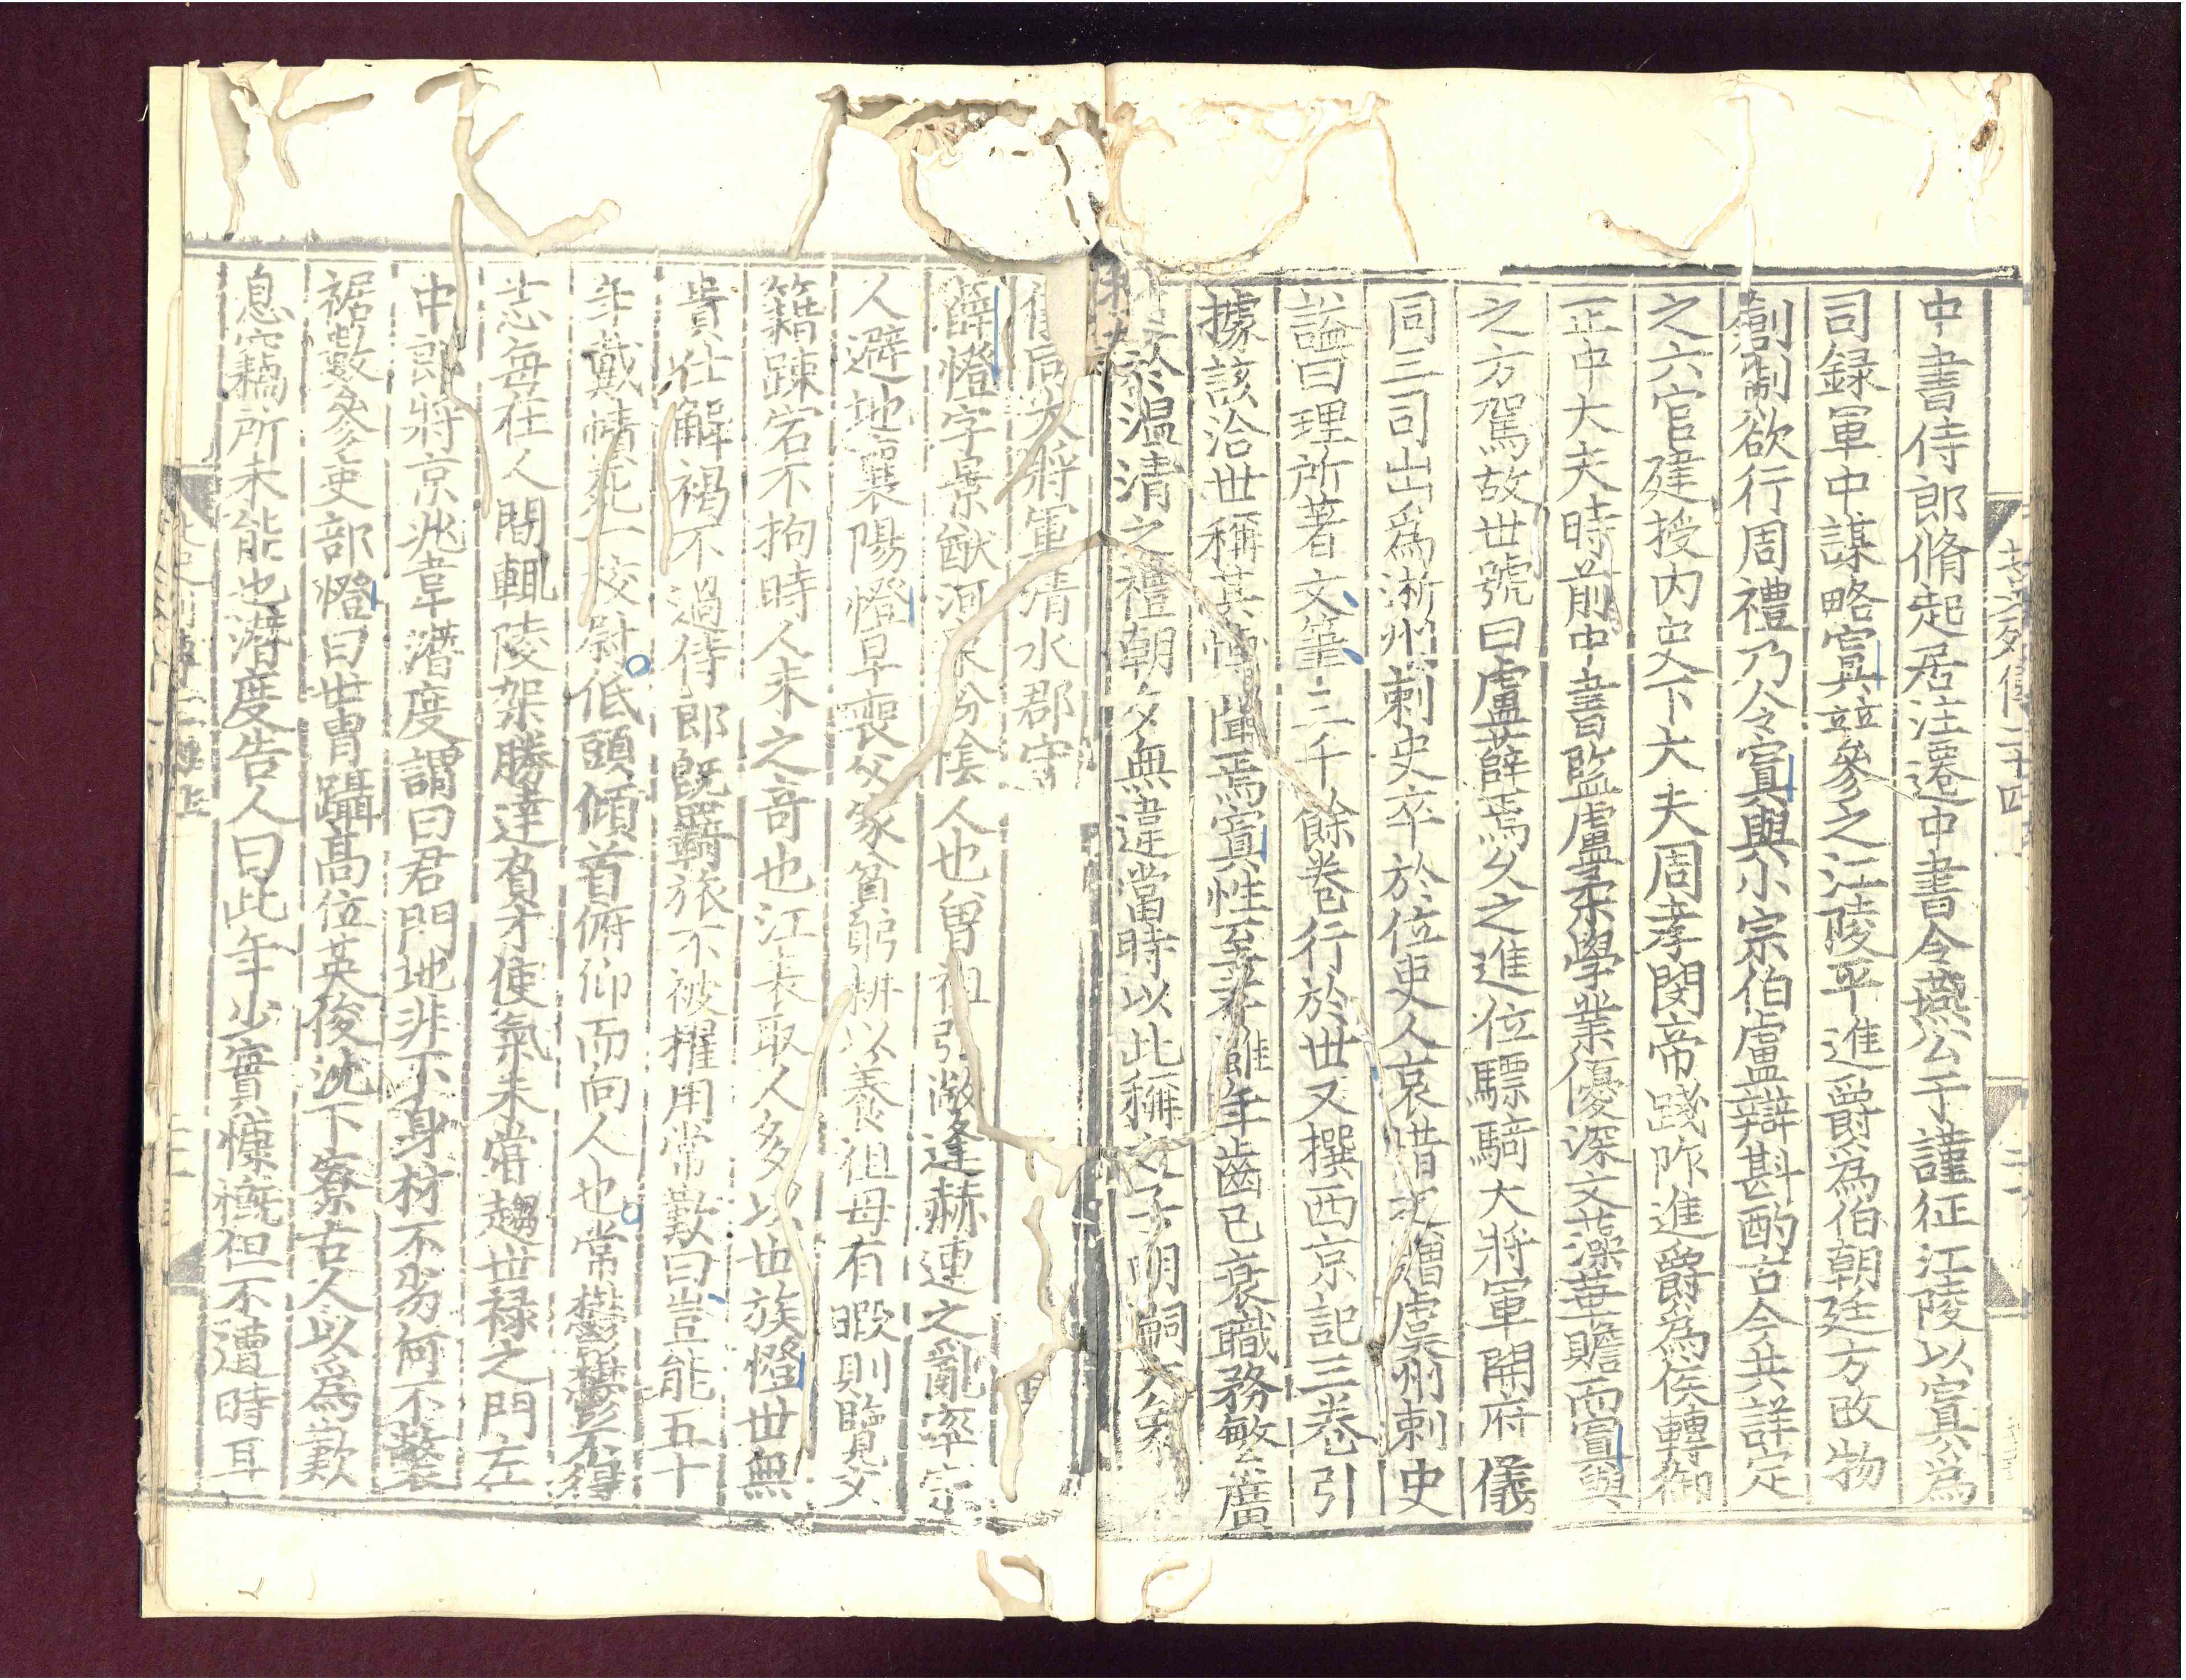 中書侍郎脩起居注遷中書令燕公于謹征江陵以寘爲
司録軍中謀略寘並參之江陵平進爵爲伯朝廷方改物
創制欲行周禮乃令寘與小宗伯盧辯斟酌古今共詳定
之六官建授內史下大夫周孝閔帝踐阼進爵爲侯轉御
正中大夫時前中書監盧柔學業優深文藻華贍而寘與
之方駕故世號曰盧薛焉久之進位驃騎大將軍開府儀
同三司出爲淅州刺史卒於位吏人哀惜之贈虞州刺史
諡曰理所著文筆二十餘卷行於世又撰西京記三卷引
據該洽世稱其博聞焉寘性至孝雖年齒已衰職務繁廣
於溫清之禮朝夕無違當時以此稱之子明嗣大象
儀同大將軍清水郡守
薛憕字景猷河東汾陰人也曾祖弘敞逢赫連之亂率宗
人避地襄陽憕早喪父家貧躬耕以養祖母有暇則覽文
籍疎宕不拘時人未之奇也江表取人多以世族憕世無
貴仕解褐不過侍郎旣羇旅不被擢用常歎曰豈能五十
年戴幘死一校尉低頭傾首俯仰而向人也常鬱鬱不得
志每在人間輒陵架勝達負才使氣未嘗趨世祿之門左
中郎將京兆韋潛度謂曰君門地非下身材不劣何不䙝
裾數參吏部憕曰世冑躡高位英俊沈下寮古人以爲歎
息竊所未能也潛度告人曰此年少實慷慨但不遭時耳